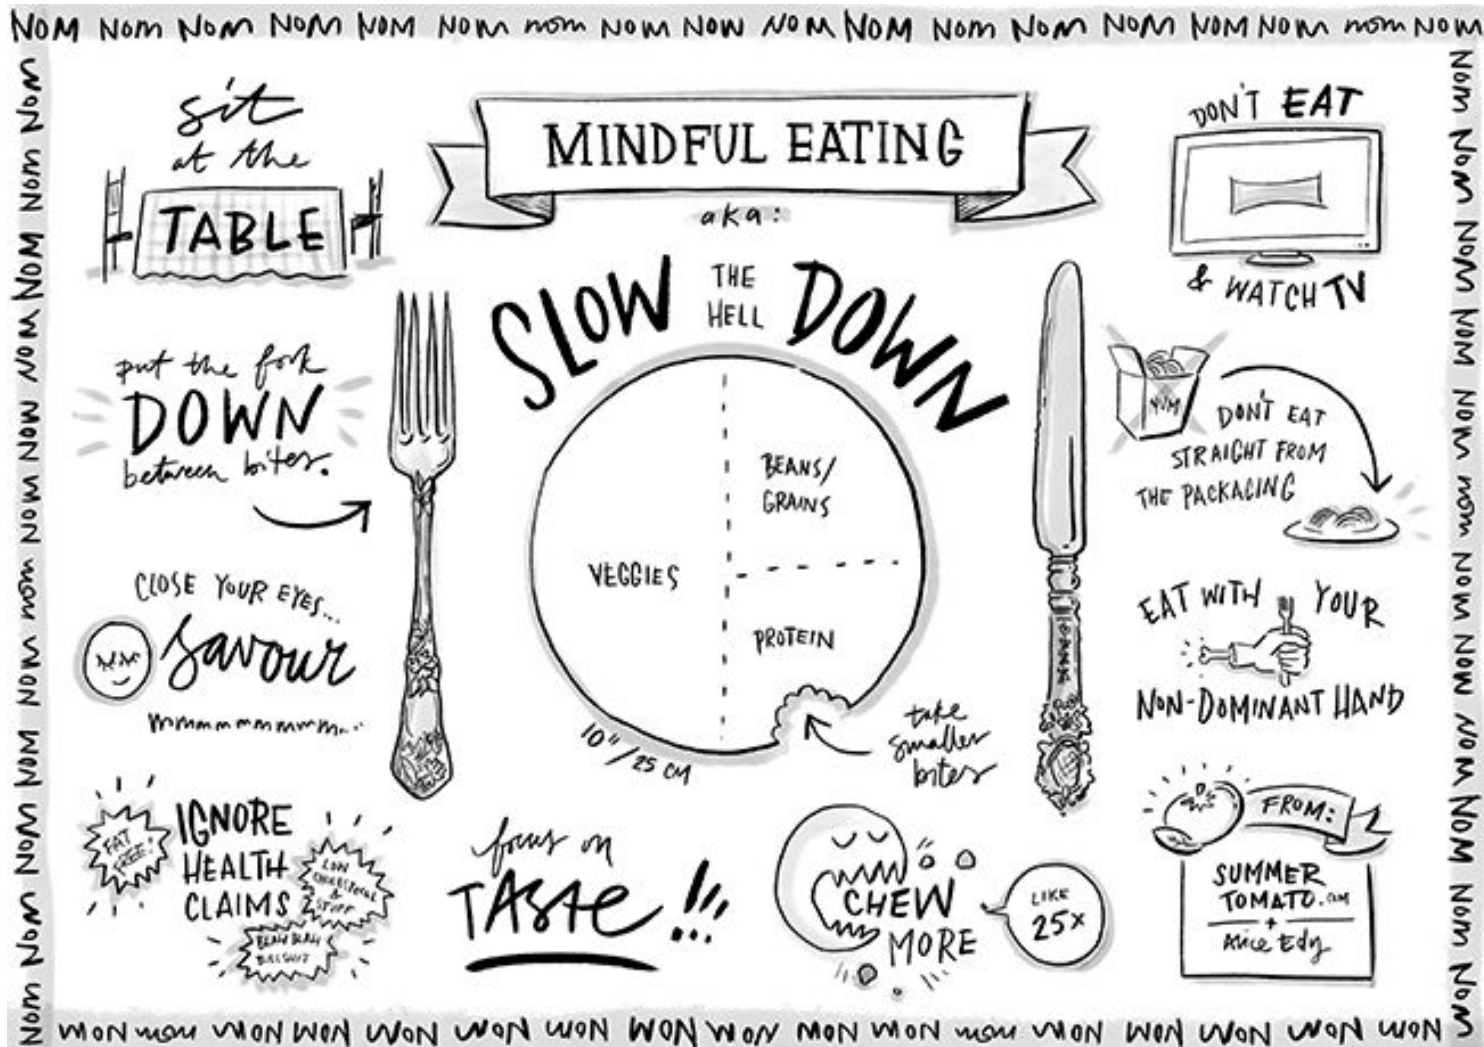 NOM NOM NOM NOM NOM NOM nom NOM NOW NOM NOM NOM NOM NOM NOM NOM nom NOM
sit
at the
TABLE
MINDFUL EATING
aka:
SLOW THE HELL DOWN
DON'T EAT
& WATCH TV
put the fork
DOWN
between bites.
YUM
DON'T EAT
STRAIGHT FROM
THE PACKAGING
VEGGIES
BEANS/
GRAINS
PROTEIN
10"/25 CM
take
smaller
bites
CLOSE YOUR EYES...
savour
mmmmmmmmmm...
EAT WITH YOUR
NON-DOMINANT HAND
FAT
FREE!
IGNORE
HEALTH
CLAIMS
LOW
CHOLESTEROL
&
STUFF
BLAH BLAH
BULLSHIT
focus on
TASTE!!!
CHEW
MORE
LIKE
25x
FROM:
SUMMER
TOMATO.COM
+
Alice Edy
NOM nom NOM NOM NOM NOM NOM NOM NOM NOM NOM NOM nom NOM NOM NOM NOM NOM